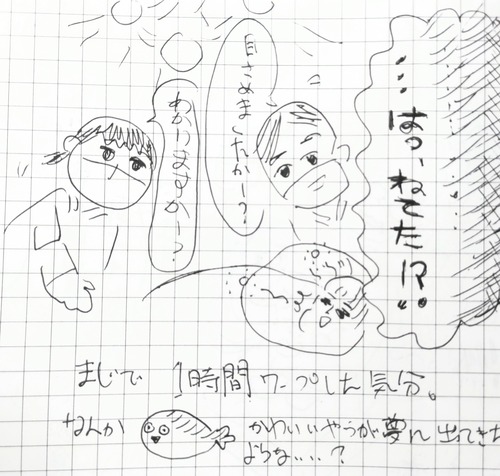 …はっ、ねてた!?
目さめましたかー?
わかりますかー?
まじで 1時間ワープした気分。
なんか かわいいやつが夢に出てきた
ような…?